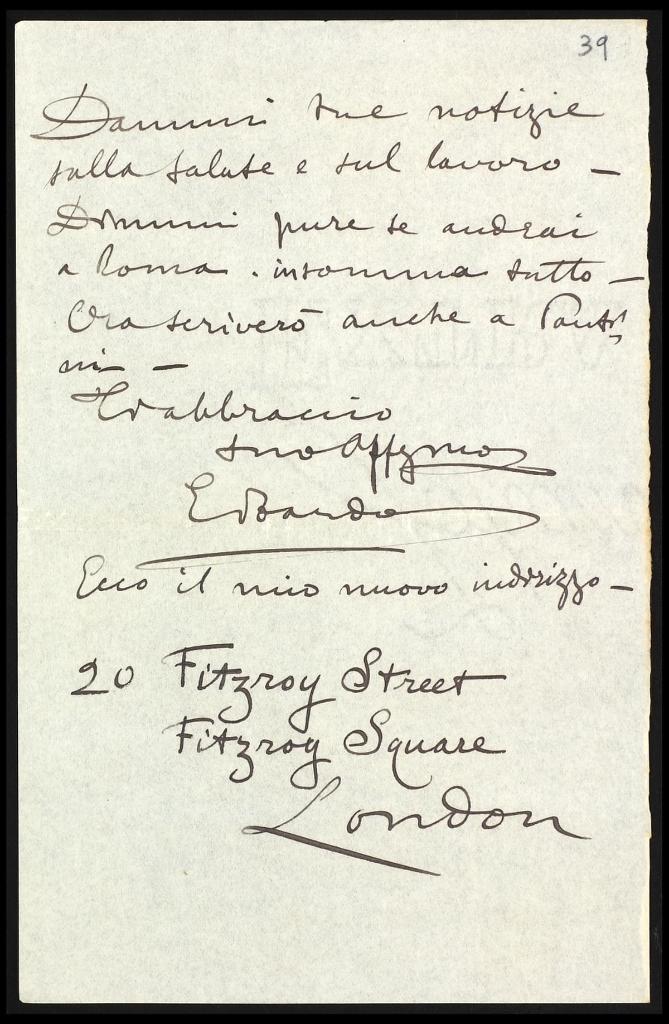 39
Dammi tue notizie
sulla salute e sul lavoro –
Dimmi pure se andrai
a Roma. insomma tutto –
Ora scriverò anche a Panti
ni –
T'abbraccio
tuo Affzmo
Edoardo
Ecco il mio nuovo indirizzo –
20 Fitzroy Street
Fitzroy Square
London